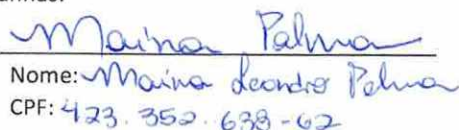 unhas:
Maina Palma
Nome: Maina Leandro Palma
CPF: 423.352.638-62